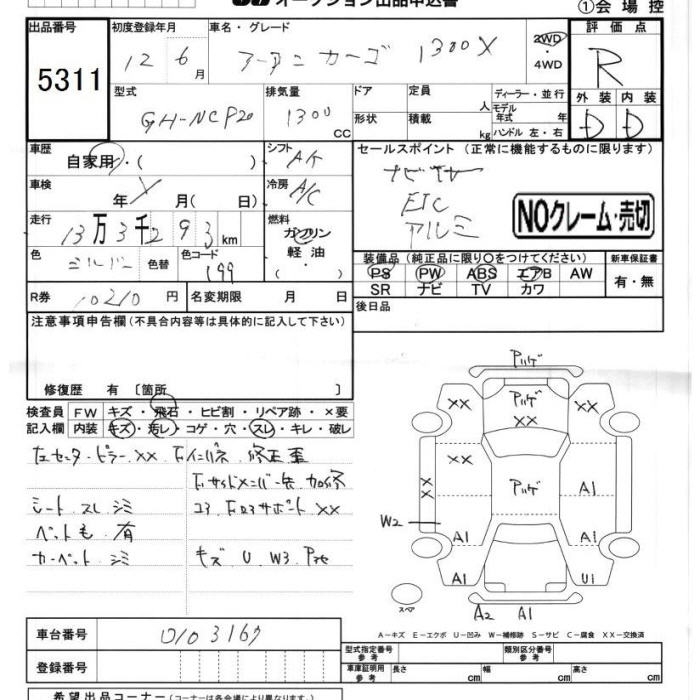 オークション出品申込書
①会場控
出品番号
5311
初度登録年月
12 6月
車名・グレード
カーゴ 1300X
2WD
・
4WD
評価点
R
外装 内装
D D
型式
GH-NCP20
排気量
1300
CC
ドア
形状
定員
人
積載
kg
ディーラー・並行
モデル
年式 年
ハンドル 左・右
車歴
自家用・( )
シフト
AT
セールスポイント (正常に機能するものに限ります)
ナビTV
ETC
アルミ
NOクレーム・売切
車検
年 月( 日)
冷房
A/C
走行
13万3千293km
燃料
ガソリン
軽油
・( )
色
シルバー
色替
色コード
199
装備品(純正品に限り○をつけてください)
PS PW ABS エアB AW
SR ナビ TV カワ
新車保証書
有・無
R券
10210円
名変期限 月 日
後日品
注意事項申告欄(不具合内容等は具体的に記入して下さい)
修復歴 有 〔箇所 〕
検査員
記入欄
FW キズ・飛石・ヒビ割・リペア跡・×要
内装 キズ・汚レ・コゲ・穴・スレ・キレ・破レ
左センターピラーXX 右インパネ 修正歪
右サイドメンバー先 加修
シート スレ シミ
コア 右ロアサポート XX
ペット毛 有
カーペット シミ
キズ U W3
アリゲ
アリゲ
XX
XX
XX
XX
XX
アリゲ
A1
W2
A1
A1
A1
U1
スペア
A2 A1
A-キズ E-エクボ U-凹み W-補修跡 S-サビ C-腐食 XX-交換済
車台番号
0103167
登録番号
型式指定番号
参考
類別区分番号
参考
車庫証明用
参考
長さ cm
幅 cm
高さ cm
希望出品コーナー(コーナーは各会場により異なります。)